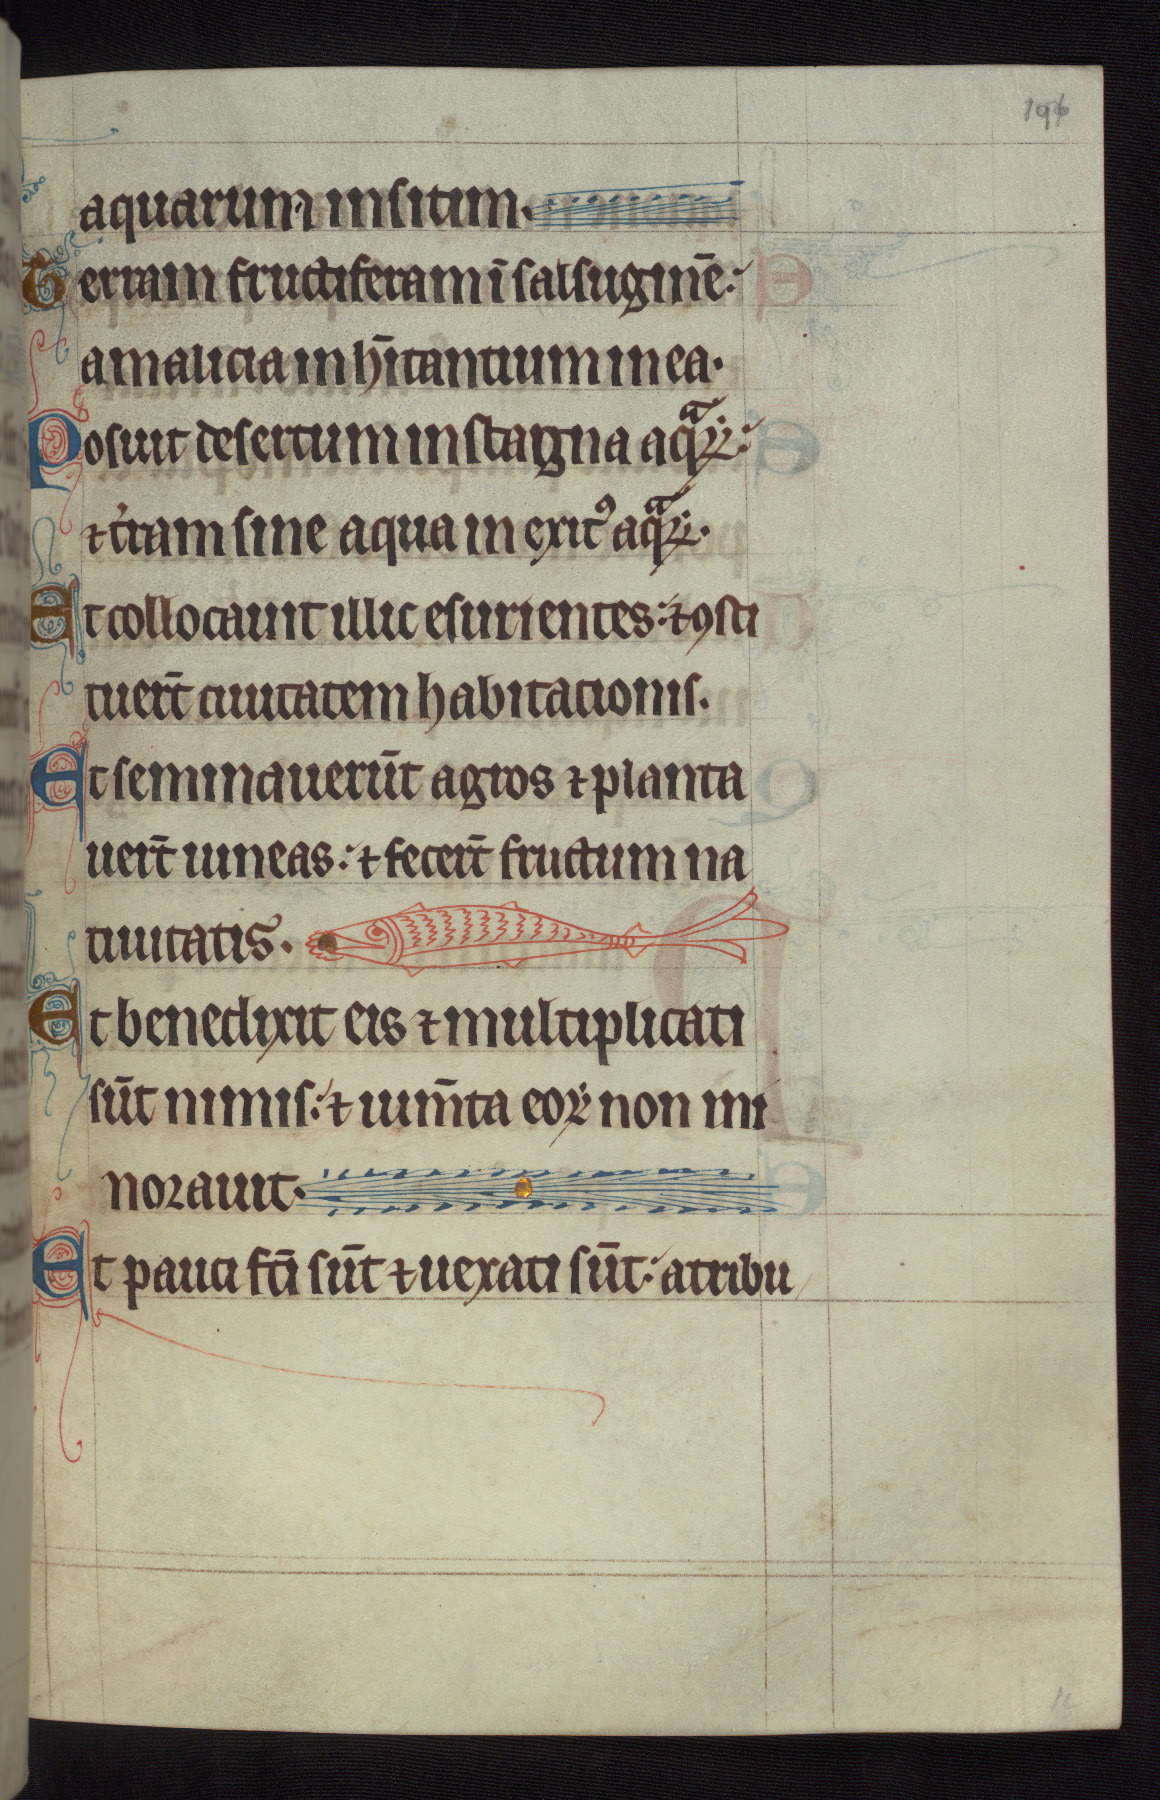 196
aquarum in sitim.
Terram fructiferam ī salsuginē:
a malicia inh̄itantium in ea.
Posuit desertum in stagna aqͣꝝ:
⁊ t̓ram sine aqua in exitꝰ aqͣꝝ.
Et collocauit illic esurientes: ⁊ ꝯsti
tuert̄ ciuitatem habitacionis.
Et seminauerūt agros ⁊ planta
uert̄ uineas: ⁊ fecert̄ fructum na
tiuitatis.
Et benedixit eis ⁊ multiplicati
sūt nimis: ⁊ ium̄ta eoꝝ non mi
norauit.
Et pauci fc̄i sūt ⁊ uexati sūt: a tribu